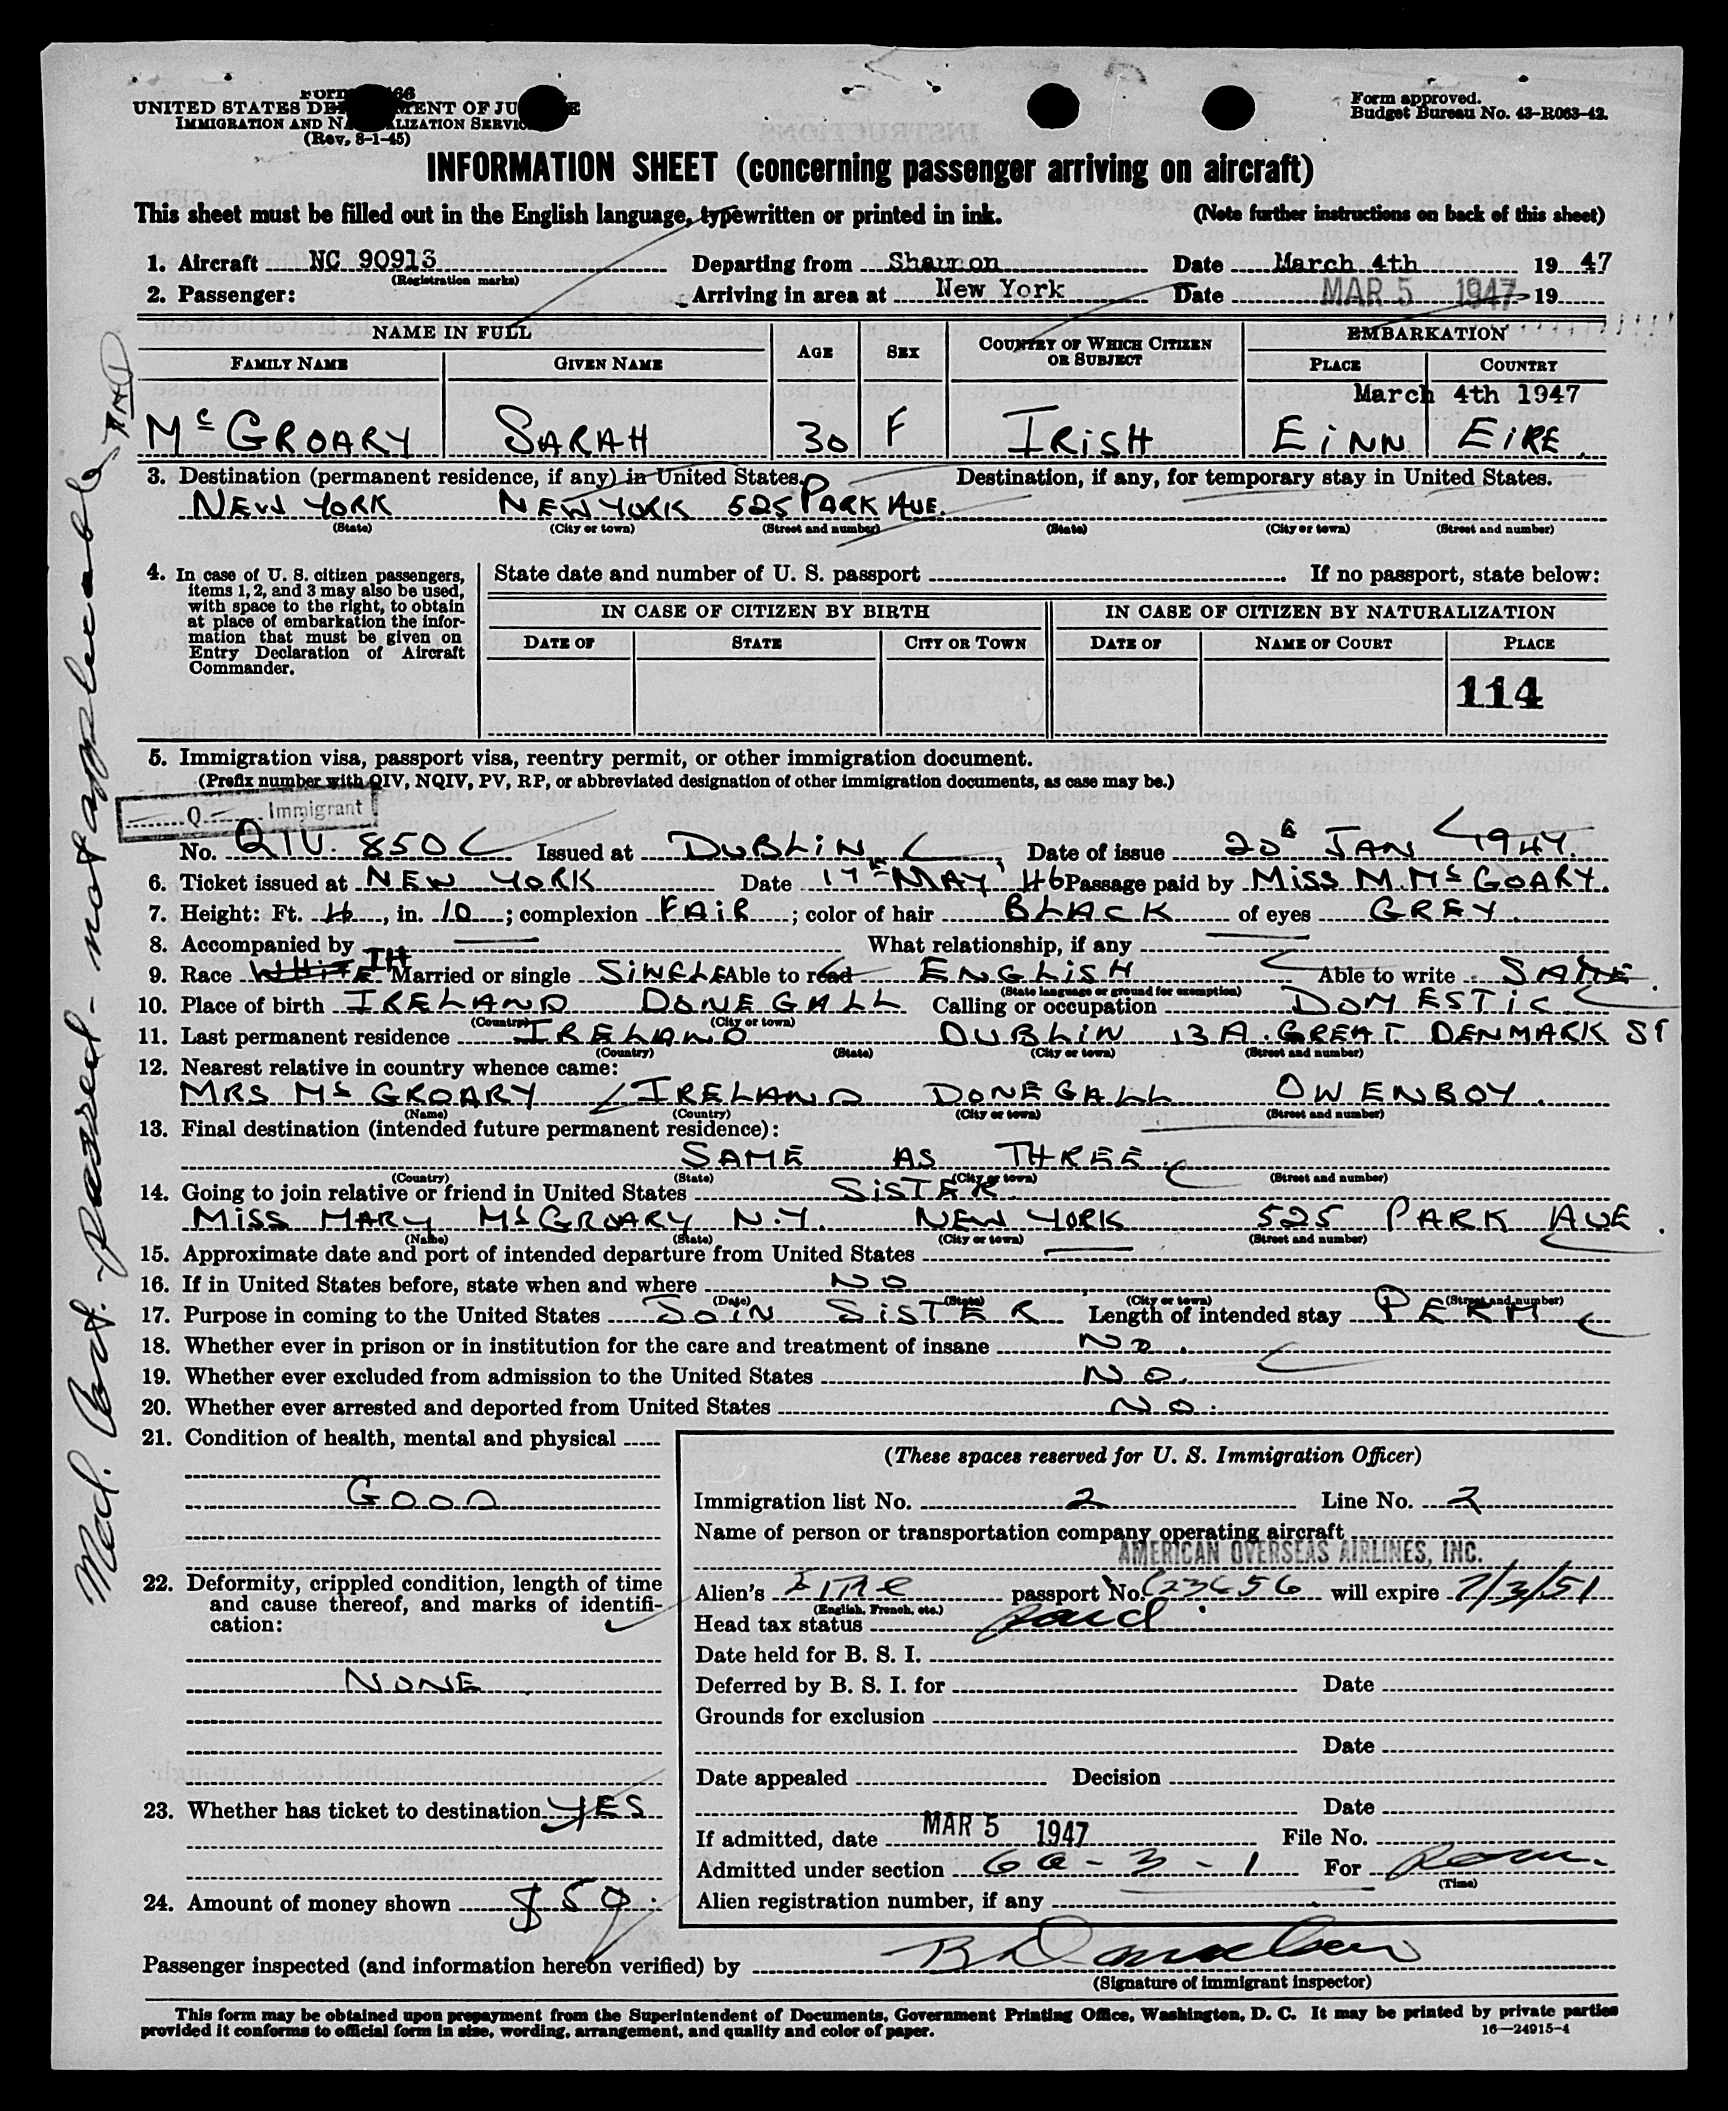 UNITED STATES DEPARTMENT OF JUSTICE
IMMIGRATION AND NATURALIZATION SERVICE
(Rev. 8-1-45)
Form approved.
Budget Bureau No. 43-R063-42.
INFORMATION SHEET (concerning passenger arriving on aircraft)
This sheet must be filled out in the English language, typewritten or printed in ink. (Note further instructions on back of this sheet)
1. Aircraft NC 90913 Departing from Shannon Date March 4th 19 47
(Registration marks)
2. Passenger: Arriving in area at New York Date MAR 5 1947 19
NAME IN FULL AGE SEX COUNTRY OF WHICH CITIZEN OR SUBJECT EMBARKATION
FAMILY NAME GIVEN NAME PLACE COUNTRY
March 4th 1947
McGROARY SARAH 30 F IRISH EINN EIRE
3. Destination (permanent residence, if any) in United States. Destination, if any, for temporary stay in United States.
NEW YORK NEW YORK 525 PARK AVE.
(State) (City or town) (Street and number) (State) (City or town) (Street and number)
4. In case of U. S. citizen passengers, items 1, 2, and 3 may also be used, with space to the right, to obtain at place of embarkation the information that must be given on Entry Declaration of Aircraft Commander.
State date and number of U. S. passport . If no passport, state below:
IN CASE OF CITIZEN BY BIRTH IN CASE OF CITIZEN BY NATURALIZATION
DATE OF STATE CITY OR TOWN DATE OF NAME OF COURT PLACE
114
5. Immigration visa, passport visa, reentry permit, or other immigration document.
(Prefix number with QIV, NQIV, PV, RP, or abbreviated designation of other immigration documents, as case may be.)
Q Immigrant
No. QIV. 850 Issued at DUBLIN Date of issue JAN 1947.
6. Ticket issued at NEW YORK Date 17th MAY '46 Passage paid by MISS M. McGOARY.
7. Height: Ft. 4, in. 10; complexion FAIR; color of hair BLACK of eyes GREY.
8. Accompanied by — What relationship, if any —
9. Race WHITE IH Married or single SINGLE Able to read ENGLISH Able to write SAME.
(State language or ground for exemption)
10. Place of birth IRELAND DONEGALL Calling or occupation DOMESTIC
(Country) (City or town)
11. Last permanent residence IRELAND DUBLIN 13A. GREAT DENMARK ST
(Country) (State) (City or town) (Street and number)
12. Nearest relative in country whence came:
MRS McGROARY IRELAND DONEGALL OWENBOY.
(Name) (Country) (City or town) (Street and number)
13. Final destination (intended future permanent residence):
SAME AS THREE.
(Country) (State) (City or town) (Street and number)
14. Going to join relative or friend in United States SISTER.
MISS MARY McGROARY N.Y. NEW YORK 525 PARK AVE.
(Name) (State) (City or town) (Street and number)
15. Approximate date and port of intended departure from United States —
16. If in United States before, state when and where NO
(Date) (State) (City or town) (Street and number)
17. Purpose in coming to the United States JOIN SISTER Length of intended stay PERM
18. Whether ever in prison or in institution for the care and treatment of insane NO.
19. Whether ever excluded from admission to the United States NO.
20. Whether ever arrested and deported from United States NO.
21. Condition of health, mental and physical
GOOD
22. Deformity, crippled condition, length of time and cause thereof, and marks of identification:
NONE
23. Whether has ticket to destination YES
24. Amount of money shown $50.
(These spaces reserved for U. S. Immigration Officer)
Immigration list No. 2 Line No. 2
Name of person or transportation company operating aircraft
AMERICAN OVERSEAS AIRLINES, INC.
Alien's passport No. C23656 will expire 7/3/51
(English, French, etc.)
Head tax status paid
Date held for B. S. I.
Deferred by B. S. I. for Date
Grounds for exclusion
Date
Date appealed Decision
Date
If admitted, date MAR 5 1947 File No.
Admitted under section 6a-3-1 For Perm.
(Time)
Alien registration number, if any
Passenger inspected (and information hereon verified) by
(Signature of immigrant inspector)
This form may be obtained upon prepayment from the Superintendent of Documents, Government Printing Office, Washington, D. C. It may be printed by private parties
provided it conforms to official form in size, wording, arrangement, and quality and color of paper. 16—24915-4
Med. Cert. passed - not applicable